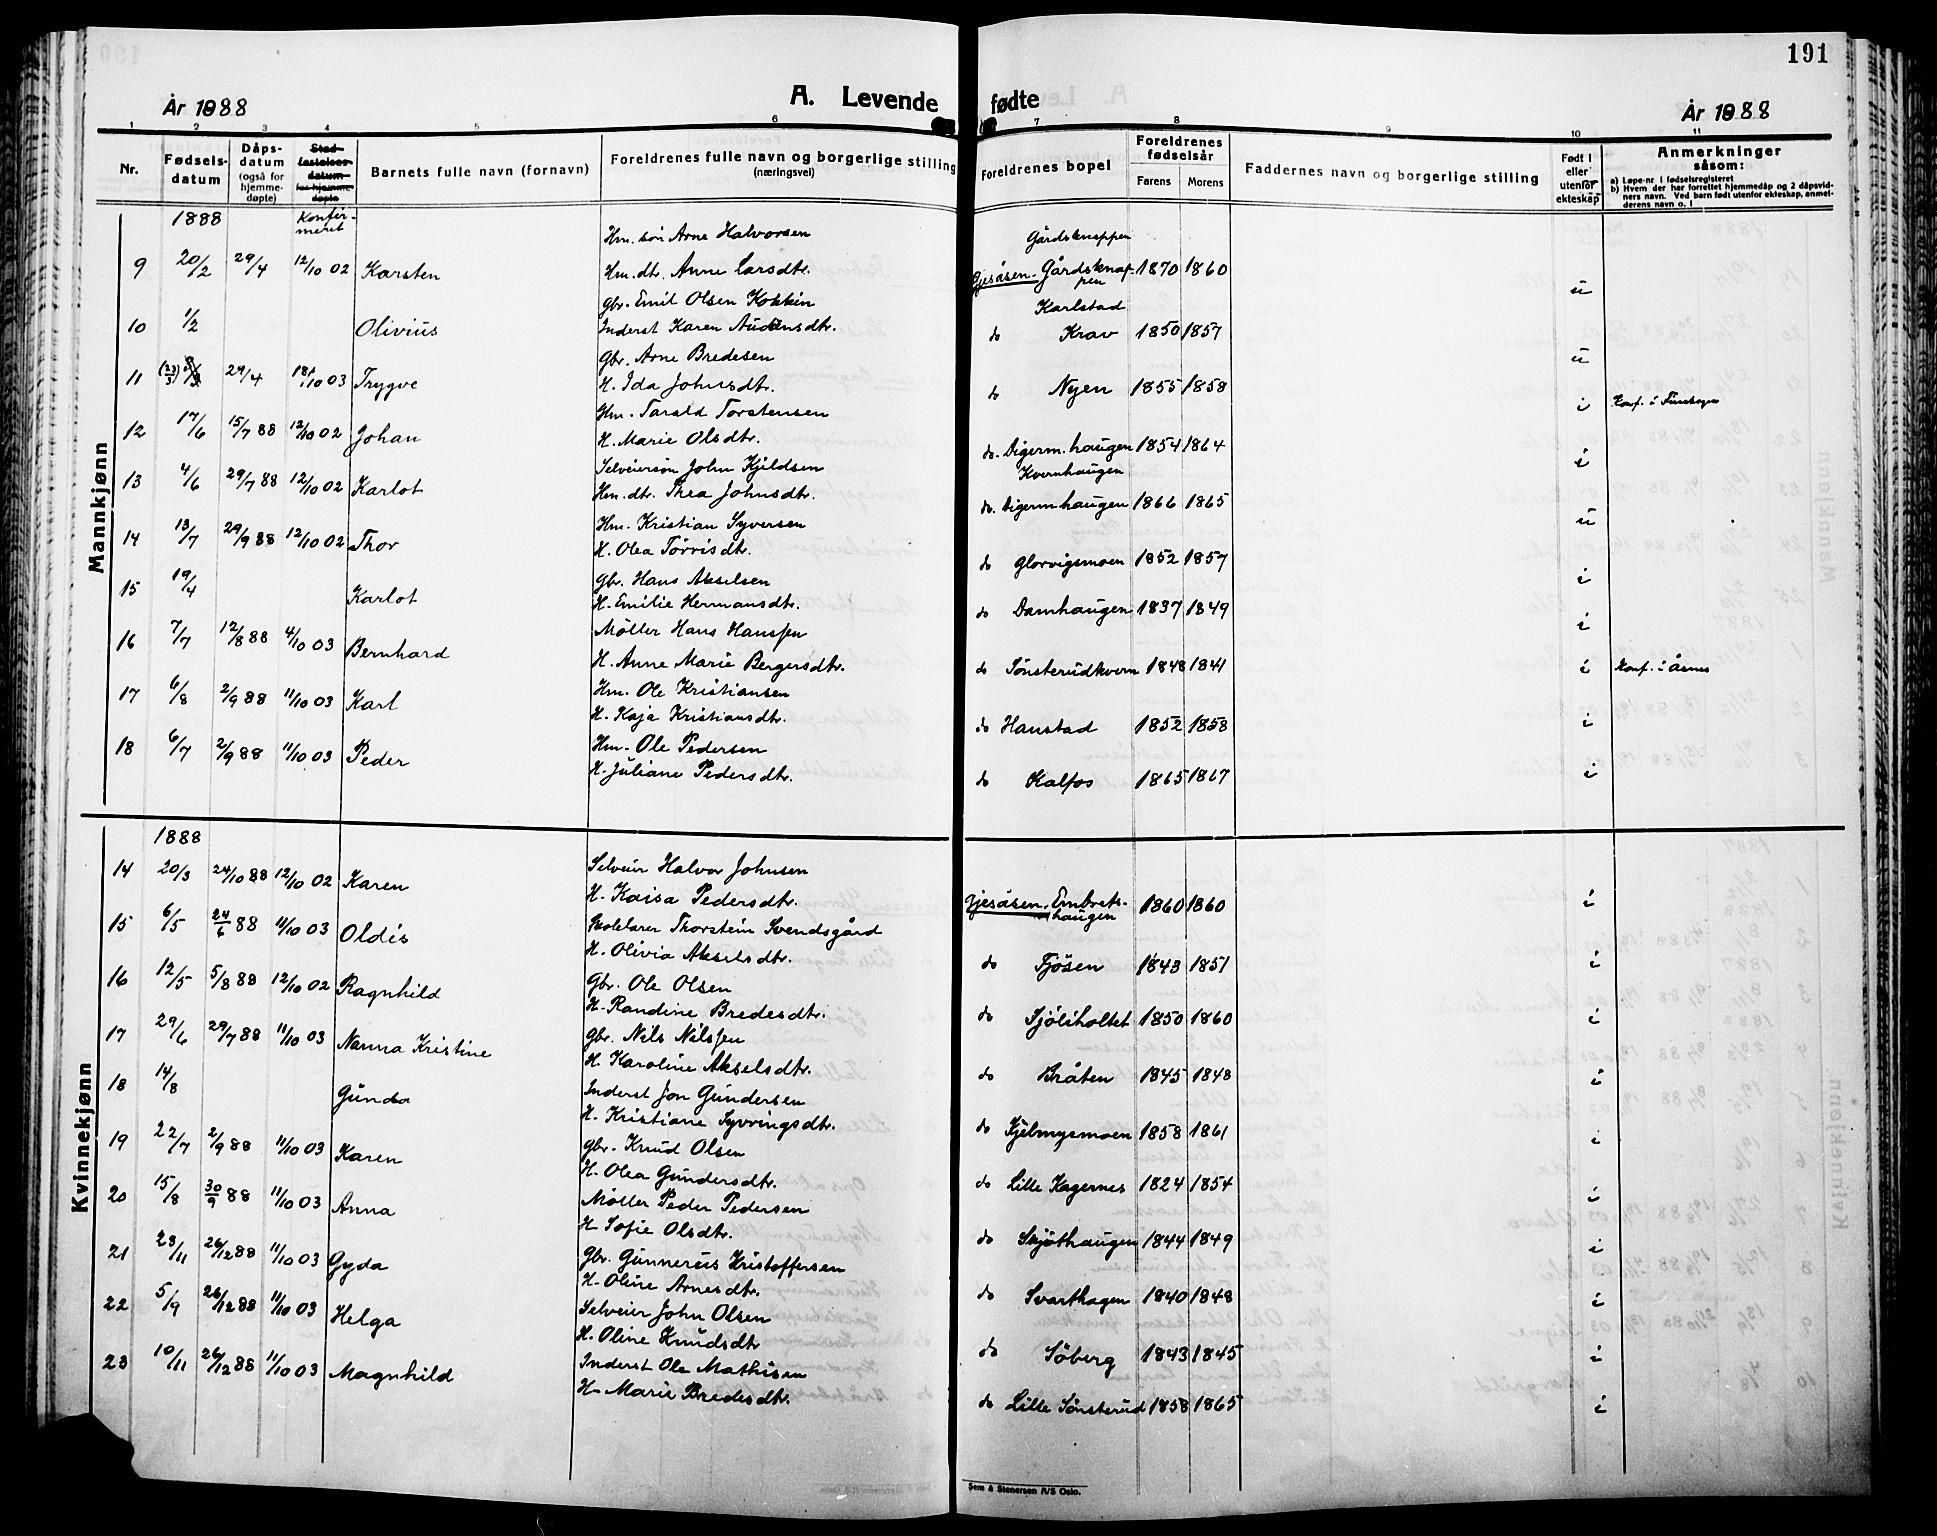 191
År 1888
A. Levende fødte
År 1888
1 2 3 4 5 6 7 8 9 10 11
Nr.
Fødsels-datum
Dåps-datum (også for hjemme-døpte)
Stad-festelses-datum for hjemme-døpte
Barnets fulle navn (fornavn)
Foreldrenes fulle navn og borgerlige stilling (næringsvei)
Foreldrenes bopel
Foreldrenes fødselsår
Farens Morens
Faddernes navn og borgerlige stilling
Født i eller utenfor ekteskap
Anmerkninger såsom:
a) Løpe-nr i fødselsregisteret
b) Hvem der har forrettet hjemmedåp og 2 dåpsvidners navn. Ved barn født utenfor ekteskap, anmelderens navn o. l
Mannkjønn
1888 Konfirmeret
Hm. søn Arne Halvorsen Gårdsknappen
9 20/2 29/4 12/10 02 Karsten Hm. dt. Anne Larsdtr. Gjesåsen. Gårdsknappen 1870 1860 u
Gbr. Emil Olsen Kokkin Karlstad
10 1/2 Olivius Inderst Karen Audensdtr. do Krav 1850 1857 u
Gbr. Arne Bredesen
11 (23/3) 29/4 /10 03 Trygve H. Ida Johnsdtr. do Nyen 1855 1858 i Konf. i
Hm. Tarald Torstensen
12 17/6 15/7 88 12/10 02 Johan H. Marie Olsdtr. do. Digerm.haugen 1854 1864 i
Selveiersøn John Kjildsen Kvernhaugen
13 4/6 29/7 88 12/10 02 Karlot Hm. dtr. Thea Johnsdtr. do. Digermhaugen 1866 1865 u
Hm. Kristian Syversen
14 13/7 29/9 88 12/10 02 Thor H. Olea Torrisdtr. do Glorvigsmoen 1852 1857 i
Gbr. Hans Akselsen
15 19/4 Karlot H. Emilie Hermansdtr. do Damhaugen 1837 1849 i
Møller Hans Hanssen
16 7/7 12/8 88 4/10 03 Bernhard H. Anne Marie Bergersdtr. do Sønsterudkvern 1848 1841 i Konf. i Åsnes
Hm. Ole Kristiansen
17 6/8 2/9 88 11/10 03 Karl H. Kaja Kristiansdtr. do Haustad 1852 1858 i
Hm. Ole Pedersen
18 6/7 2/9 88 11/10 03 Peder H. Juliane Pedersdtr. do Kalfos 1865 1867 i
Kvinnekjønn
1888
Selveier Halvor Johnsen
14 20/3 24/10 88 12/10 02 Karen H. Kaisa Pedersdtr. Gjesåsen. Embretshaugen 1860 1860 i
15 6/5 24/6 88 11/10 03 Oldis Skolelærer Thorstein Svendsgård
H. Olivia Akselsdtr. do Tjøsen 1843 1851 i
16 12/5 5/8 88 12/10 02 Ragnhild Gbr. Ole Olsen
H. Randine Bredesdtr. do Sjøliholtet 1850 1860 i
17 29/6 29/7 88 11/10 03 Nanna Kristine Gbr. Nils Nilssen
H. Karoline Akselsdtr. do Bråten 1845 1848 i
18 14/8 Gunda Inderst Jon Gundersen
H. Kristiane Syvringsdtr. do Kjelmysmoen 1858 1861 i
19 22/7 2/9 88 11/10 03 Karen Gbr. Knud Olsen
H. Olea Gundersdtr. do Lille Hagernes 1824 1854 i
20 15/8 30/9 88 11/10 03 Anna Møller Peder Pedersen
H. Sofie Olsdtr. do Skjøthaugen 1844 1849 i
21 23/11 26/12 88 11/10 03 Gyda Gbr. Gunnerius Kristoffersen
H. Oline Arnesdtr. do Svarthagen 1840 1848 i
22 5/9 26/12 88 11/10 03 Helga Selveier John Olsen
H. Oline Knudsdtr. do Søberg 1843 1845 i
23 10/11 26/12 88 11/10 03 Magnhild Inderst Ole Mathisen
H. Marie Bredesdtr. do Lille Sønsterud 1858 1865 i
Sem & Stenersen A/S Oslo.